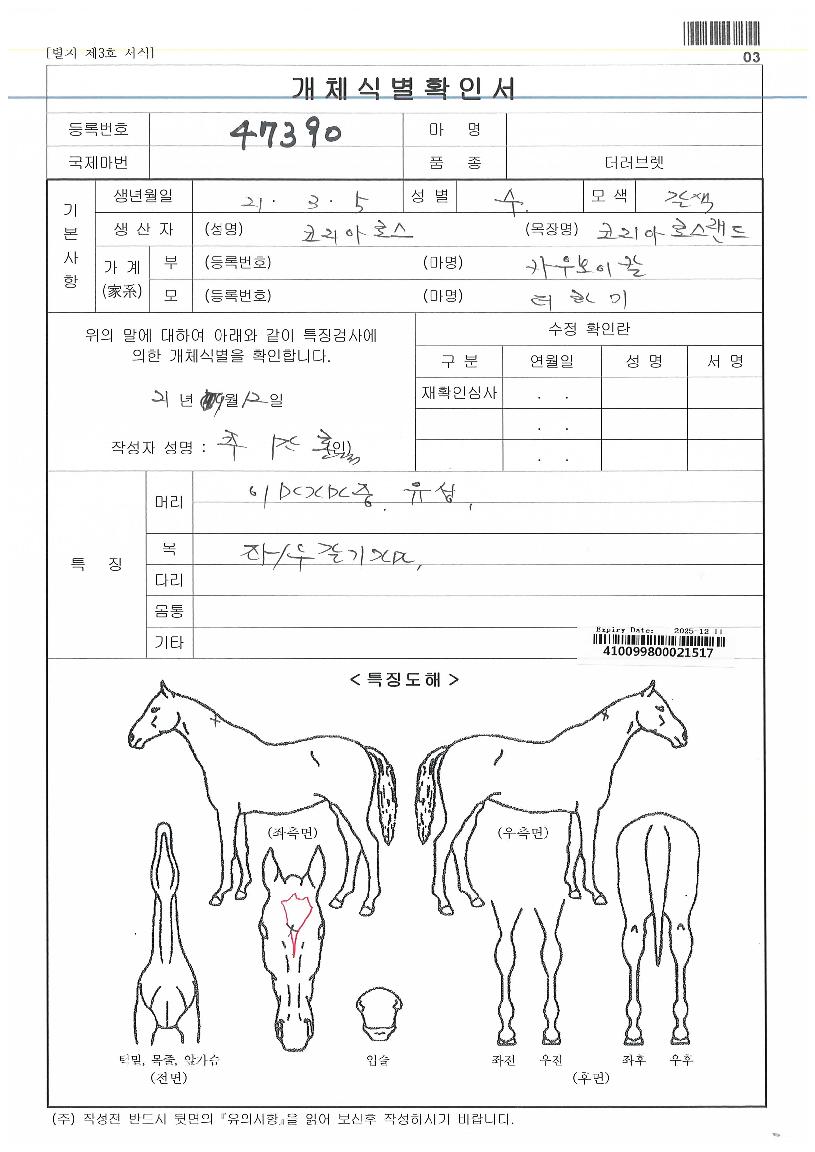 [별지 제3호 서식]
03
개체식별확인서
등록번호 47390 마 명
국제마번 품 종 더러브렛
기본사항
생년월일 21. 3. 5 성 별 수. 모 색 갈색
생 산 자 (성명) 코리아로스 (목장명) 코리아로스랜드
가 계 (家系) 부 (등록번호) (마명) 카우보이칼
모 (등록번호) (마명)
위의 말에 대하여 아래와 같이 특징검사에
의한 개체식별을 확인합니다.
21 년 9월 12일
작성자 성명 : (인)
수정 확인란
구 분 연월일 성 명 서 명
재확인심사 . .
. .
. .
특 징
머리 유성.
목 좌/우
다리
몸통
기타
Expiry Date: 2025-12-11
410099800021517
< 특징도해 >
(좌측면) (우측면)
턱밑, 목줄, 앞가슴 입술 좌전 우전 좌후 우후
(전면) (후면)
(주) 작성전 반드시 뒷면의 『유의사항』을 읽어 보신후 작성하시기 바랍니다.